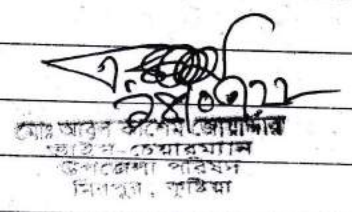 মোঃ আবুল কাশেম জোয়ার্দ্দার
ভাইস চেয়ারম্যান
উপজেলা পরিষদ
মিরপুর, কুষ্টিয়া